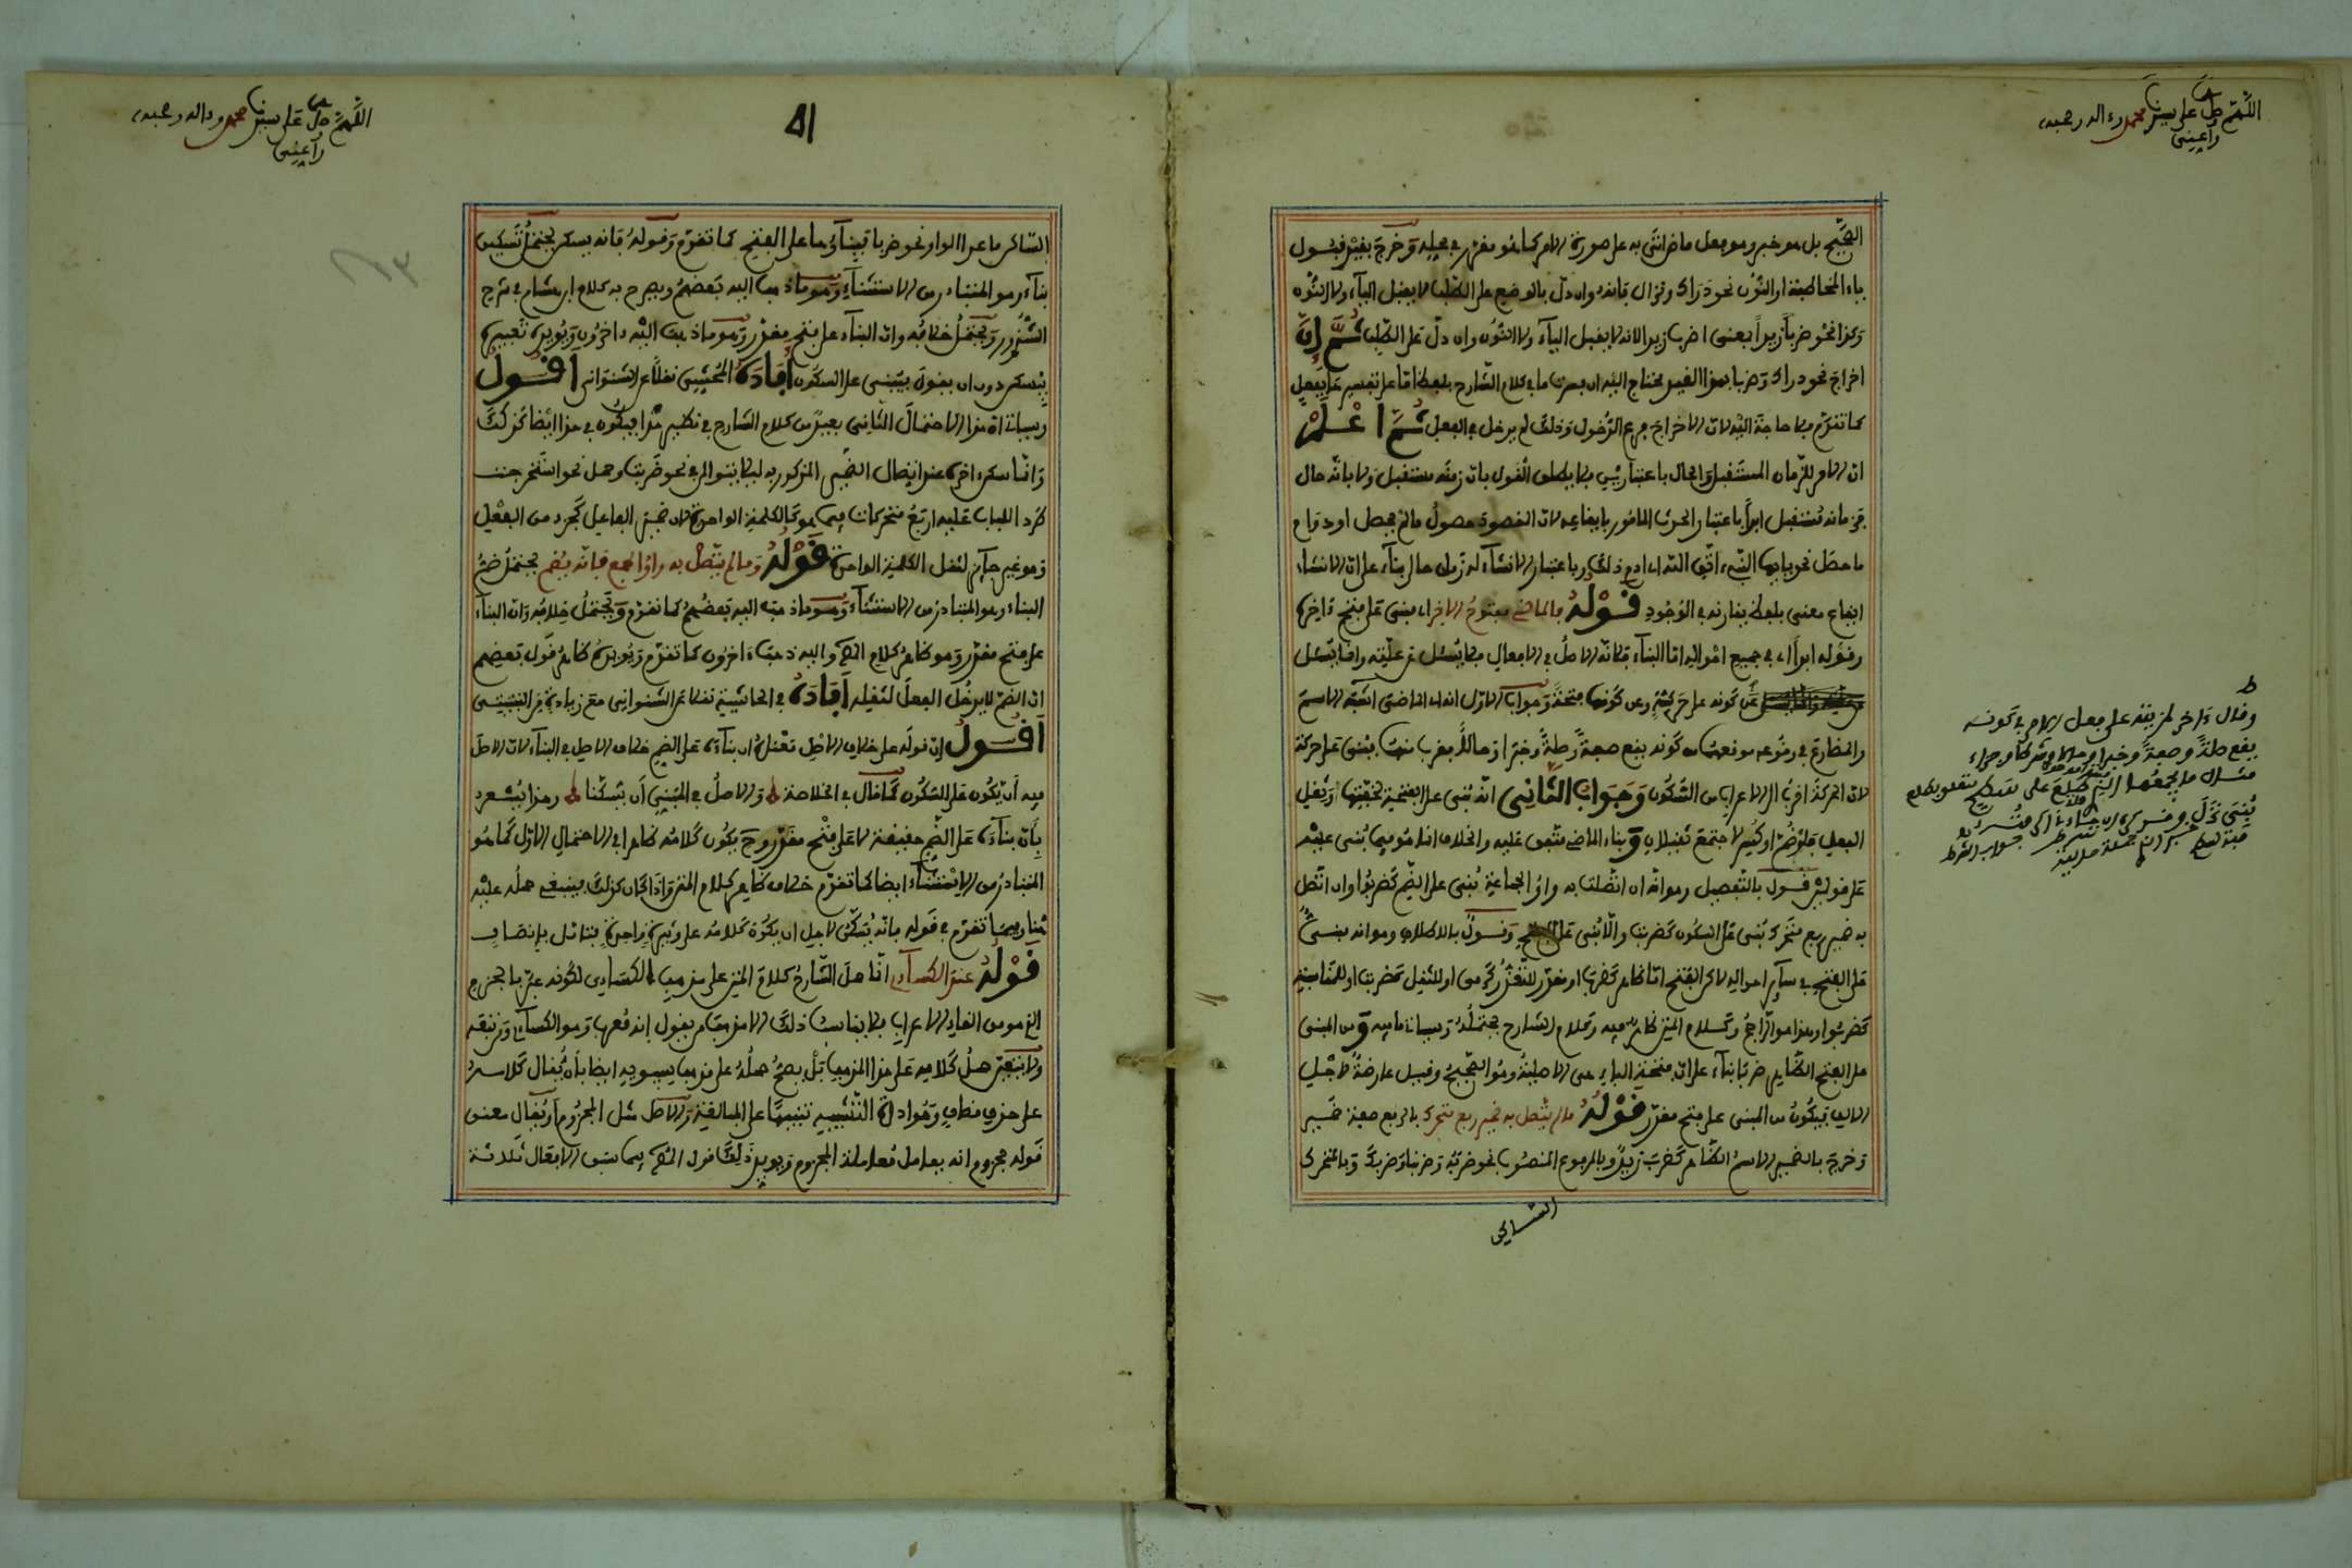 اللهم صل على سيدنا محمد وءاله وصحبه
وأعني
الصحيح بل هو خبر وهو فعل ماض اتى به على صورة الامر كما هو مقرر في محله وخرج بقيد قبول
ياء المخاطبة او النون نحو دراك ونزال فانه وان دل بالوضع على الطلب لا يقبل الياء ولا النون
وكذا نحو ضربا زيدا بمعنى اضرب زيدا لانه لا يقبل الياء ولا النون وان دل على الطلب ثم ان
اخراج نحو دراك وضربا بهذا القيد يحتاج اليه ان فسرت ما في كلام الشارح بلفظ اما على تفسير ما بفعل
كما تقدم فلا حاجة اليه لان الاخراج فرع الدخول وذلك لم يدخل في الفعل ثم اعلم
ان الامر للزمان المستقبل والحال باعتبارين فلا يطلق القول بان زمنه مستقبل ولا بانه حال
فزمانه مستقبل ابدا باعتبار الحدث المامور بايقاعه لان المقصود حصول ما لم يحصل او دوام
ما حصل نحو يايها النبيء اتق الله اي ادم ذلك وباعتبار الانشاء له زمان حال بناء على ان الانشاء
ايقاع معنى بلفظ يقارنه في الوجود قوله فالماضي مفتوح الاخر اي مبني على فتح ءاخره
وقوله ابدا اي في جميع احواله اما البناء فلانه الاصل في الافعال فلا يسئل عن علته وانما يسئل
عن كونه على حركة وعن كونها فتحة وجواب الاول انه اي الماضي اشبه الاسم
والمضارع في وقوعه موقعهما من كونه يقع صفة وصلة وخبرا وحالا بقرب منهما فبني على حركة
لان الحركة اقرب الى الاعراب من السكون وجواب الثاني انه بني على الفتحة لخفتها وثقل
الفعل فلو ضم او كسر لاجتمع ثقيلان وبناء الماضي متفق عليه والخلاف انما هو فيما بني عليه
على قولين قول بالتفصيل وهو انه ان اتصلت به واو الجماعة بني على الضم كضربوا وان اتصل
به ضمير رفع متحرك بني على السكون كضربت والا بني على الفتح وقول بالاطلاق وهو انه مبني
على الفتح في سائر احواله لاكن الفتح اما ظاهر كضرب او مقدر للتعذر كرمى او للثقل كضربت او للمناسبة
كضربوا وهذا هو الراجح وكلام المتن ظاهر فيه وكلام الشارح محتمل له وسيأتي ما فيه ومن المبني
على الفتح الظاهر ضربا بناء على ان فتحة الباء هي الاصلية وهو الصحيح وقيل عارضة لاجل
الالف فيكون من المبني على فتح مقدر قوله ما لم يتصل به ضمير رفع متحرك بالرفع صفة ضمير
وخرج بالضمير الاسم الظاهر كضرب زيد وبالمرفوع المنصوب نحو ضربه وضربنا وضربك وبالمتحرك
الساكن
وقال ءاخر لمزيته على فعل الامر في كونه
يقع صلة وصفة وخبرا وحالا وشرطا وجزاء
اللهم صل على سيدنا محمد وءاله وصحبه
وأعني
51
الساكن ما عدا الواو نحو ضربا فبناؤهما على الفتح كما تقدم وقوله فانه يسكن يحتمل تسكين
بناء وهو المتبادر من الاستثناء وهو ما ذهب اليه بعضهم وصرح به كلام ابن هشام في شرح
الشذور ويحتمل خلافه وان البناء على فتح مقدر وهو ما ذهب اليه ءاخرون ويؤيده تعبيره
بيسكن دون ان يقول يبنى على السكون افاده المحشي نقلا عن الشنواني اقول
وسياتي ان هذا الاحتمال الثاني بعيد من كلام الشارح في نظير هذا فيكون في هذا ايضا كذلك
وانما سكن ءاخره عند اتصال الضمير المذكور به ليلا يتوالى في نحو ضربت وحمل نحو استخرجت
طردا للباب عليه اربع متحركات فيما هو كالكلمة الواحدة لان ضمير الفاعل كجزء من الفعل
وهو غير جائز لثقل الكلمة الواحدة قوله وما لم يتصل به واو الجمع فانه يضم يحتمل ضم
البناء وهو المتبادر من الاستثناء وهو ما ذهب اليه بعضهم كما تقدم ويحتمل خلافه وان البناء
على فتح مقدر وهو ظاهر كلام المص واليه ذهب ءاخرون كما تقدم ويؤيده ظاهر قول بعضهم
ان الضم لا يدخل الفعل لثقله افاده في الحاشية نقلا عن الشنواني مع زيادة من النبتيتي
اقول ان قوله على خلاف الاصل مقتضاه ان بناءه على الضم خلاف الاصل في البناء لان الاصل
فيه ان يكون على السكون كما قال في الخلاصة والاصل في المبني ان يسكنا وهذا يشعر
بان بناءه على الضم حقيقة لا على فتح مقدر وح يكون كلامه ظاهرا في الاحتمال الاول كما هو
المتبادر من الاستثناء ايضا كما تقدم خلاف ظاهر كلام المتن واذا كان كذلك فينبغي حمله عليه
هنا وفيما تقدم في قوله فانه يسكن لاجل ان يكون كلامه على وتيرة واحدة فتامل بانصاف
قوله عند الكسائي انما حمل الشارح كلام المتن على مذهب الكسائي لكونه عبر بالجزم
الذي هو من القاب الاعراب فلا يناسب ذلك الا مذهب من يقول انه معرب وهو الكسائي ومن تبعه
ولا يتعين حمل كلامه على هذا المذهب بل يصح حمله على مذهب سيبويه ايضا بان يقال كلامه
على حذف مضاف وهو اداة التشبيه تنبيها على المبالغة والاصل مثل المجزوم او يقال معنى
قوله مجزوم انه يعامل معاملة المجزوم ويؤيد ذلك قول المص فيما سبق الافعال ثلاثة